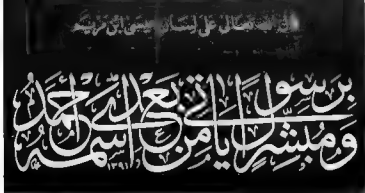 قال الله تعالى على لسان عيسى ابن مريم
وَمُبَشِّرًا بِرَسُولٍ يَأْتِي مِنْ بَعْدِي اسْمُهُ أَحْمَدُ
١٣٩١